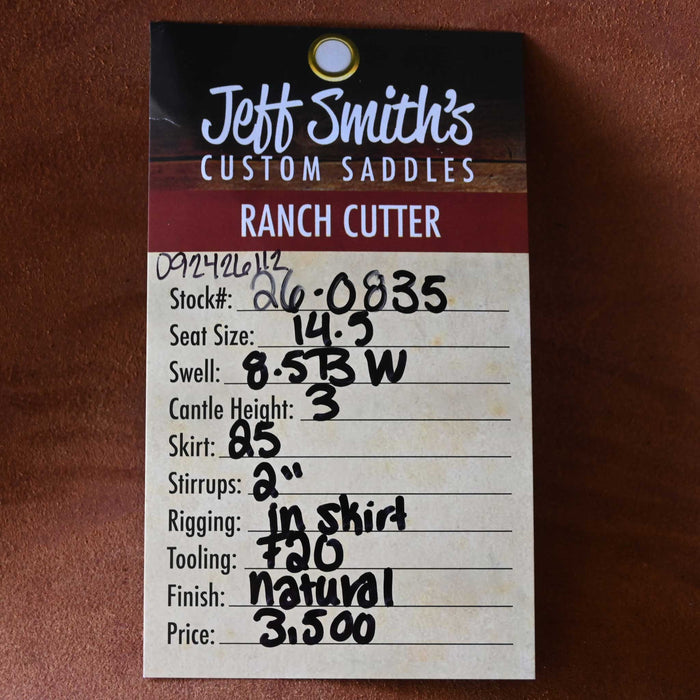 Jeff Smith's
CUSTOM SADDLES
RANCH CUTTER
092426112
Stock#: 26-0835
Seat Size: 14.5
Swell: 8.5 B W
Cantle Height: 3
Skirt: 25
Stirrups: 2"
Rigging: in skirt
Tooling: F20
Finish: natural
Price: 3,500